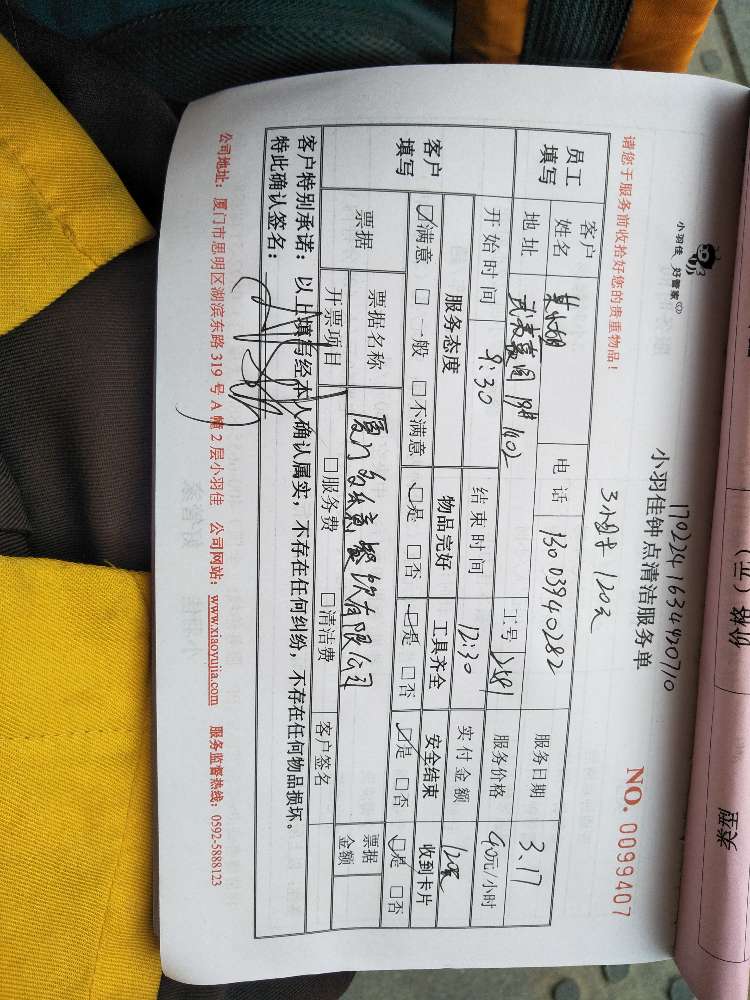 小羽佳 好管家
170224163449071 0
小羽佳钟点清洁服务单
NO. 0099407
请您于服务前收拾好您的贵重物品！
3小时 120元
员工填写
客户姓名
电话 13003940282
服务日期 3.17
地址 1402
工号 2581
服务价格 40元/小时
客户填写
开始时间 9:30
结束时间 12:30
实付金额 120元
服务态度 物品完好 工具齐全 安全结束 收到卡片
☑满意 □一般 □不满意 ☑是 □否 ☑是 □否 ☑是 □否 ☑是 □否
票据 票据名称 厦门 餐饮有限公司 票据金额
开票项目 □服务费 □清洁费 客户签名
客户特别承诺：以上填写经本人确认属实，不存在任何纠纷，不存在任何物品损坏。
特此确认签名：
公司地址：厦门市思明区湖滨东路 319 号 A 幢 2 层小羽佳 公司网站：www.xiaoyujia.com 服务监督热线：0592-5888123
价格（